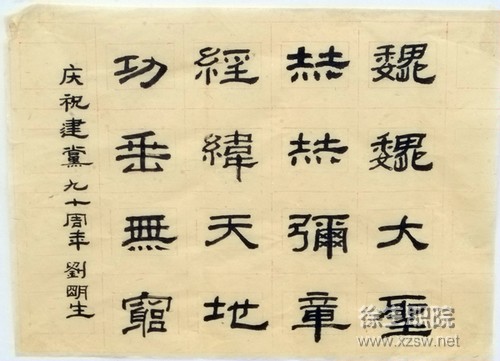 魏魏大聖
赫赫彌章
經緯天地
功垂無窮
庆祝建黨九十周年 劉明生
徐生职院
www.xzsw.net